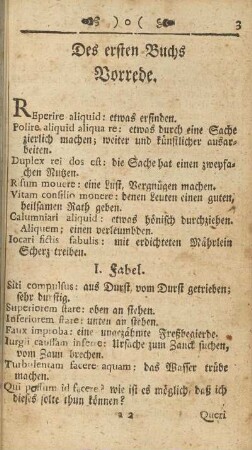 ) o (
3
Des ersten Buchs
Vorrede.
REperire aliquid: etwas erfinden.
Polire aliquid aliqua re: etwas durch eine Sache
zierlich machen; weiter und künstlicher ausar-
beiten.
Duplex rei dos est: die Sache hat einen zweyfa-
chen Nutzen.
Risum movere: eine Lust, Vergnügen machen.
Vitam consilio monere: denen Leuten einen guten,
heilsamen Rath geben.
Calumniari aliquid: etwas hönisch durchziehen.
Aliquem; einen verleumbden.
Iocari fictis fabulis: mit erdichteten Mährlein
Scherz treiben.
I. Fabel.
Siti compulsus: aus Durst, vom Durst getrieben;
sehr durstig.
Superiorem stare: oben an stehen.
Inferiorem stare: unten an stehen.
Faux improba: eine unerzähmte Freßbegierde.
Iurgii caussam inferre: Ursache zum Zanck suchen,
vom Zaun brechen.
Turbulentam facere aquam: das Wasser trübe
machen.
Qui possum id facere? wie ist es möglich, daß ich
dieses solte thun können?
a 2
Qucri